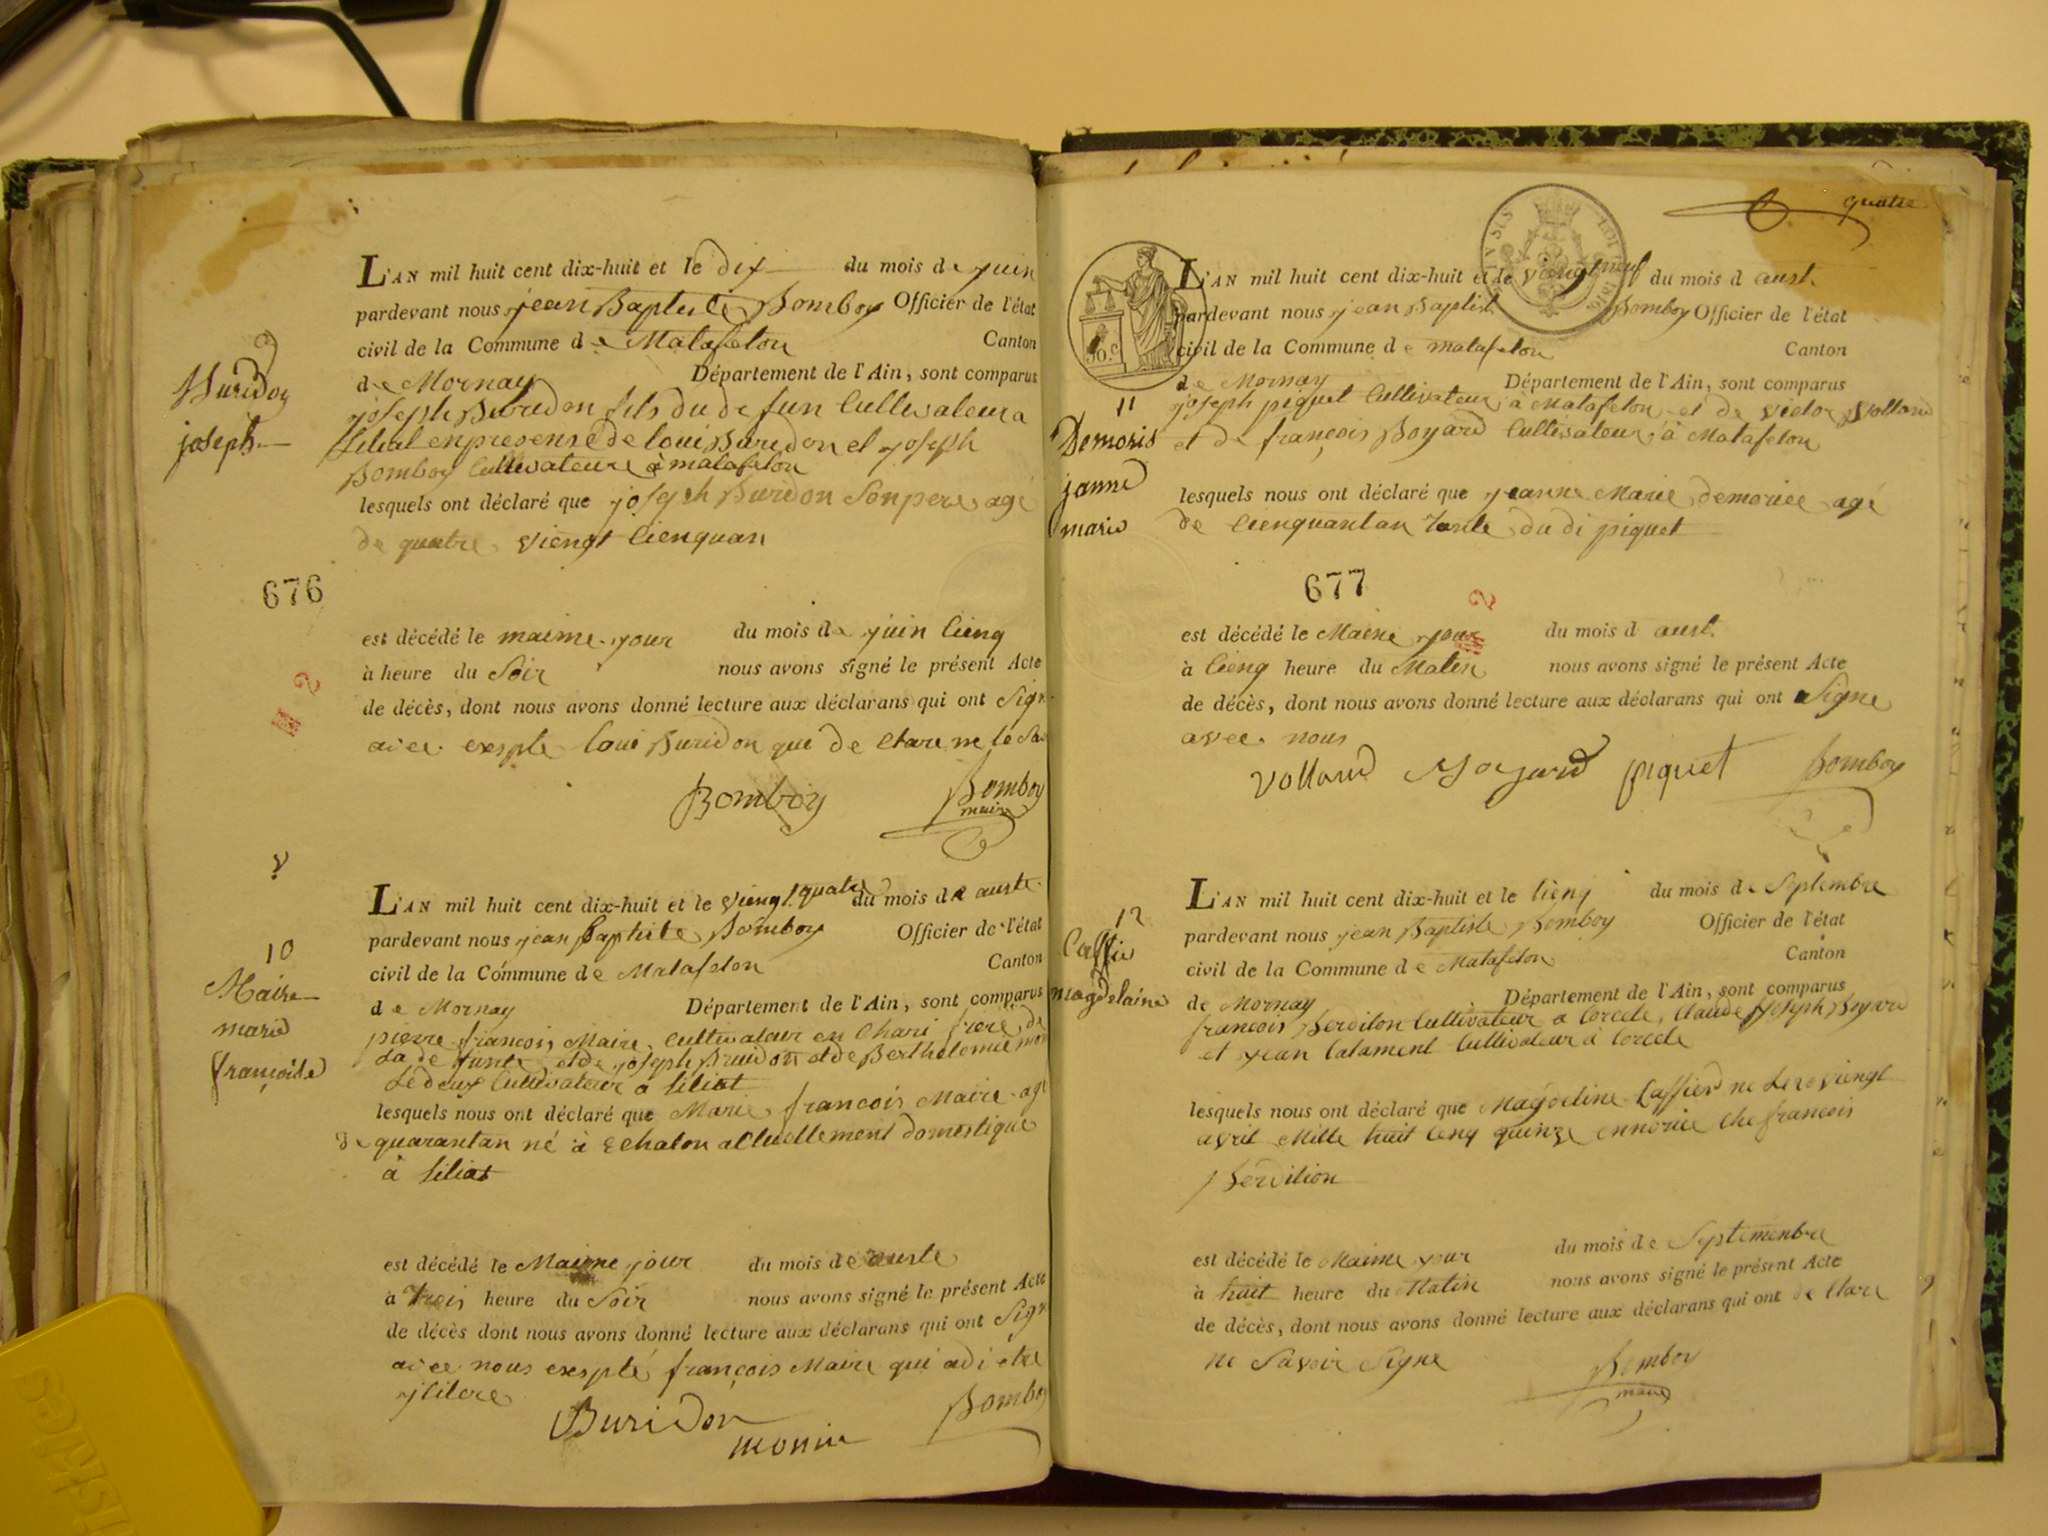 9
Buridon
joseph
L'AN mil huit cent dix-huit et le dix du mois de juin
pardevant nous jean Baptiste Bomboy Officier de l'état
civil de la Commune de Matafelon Canton
de Mornay Département de l'Ain, sont comparus
joseph Buridon fils du defun Cultivateur a
siliat enpresense de loui Buridon et joseph
Bomboy Cultivateure à matafelon
lesquels ont déclaré que joseph Buridon son pere agé
de quatre viengt cienquan
676
est décédé le maime jour du mois de juin cienq
à heure du Soir nous avons signé le présent Acte
de décès, dont nous avons donné lecture aux déclarans qui ont Sign
avec exsple loui Buridon que de clare ne le Sa
Bomboy Bomboy
maire
10
Maire
marie
françoise
L'AN mil huit cent dix-huit et le viengt quatre du mois de auste
pardevant nous jean Baptiste Bomboy Officier de l'état
civil de la Commune de Matafelon Canton
de Mornay Département de l'Ain, sont comparus
pierre françois Maire, Cultivateur en Chari frere de
La de funte et de joseph Bruidon et de Bertholomie mon
Le deux Cultivateur a siliat
lesquels nous ont déclaré que Marie françois Maire agé
de quarantan né à Echalon actuellement domestique
à siliat
est décédé le Maime jour du mois de auste
à Trois heure du Soir nous avons signé le présent Acte
de décès dont nous avons donné lecture aux déclarans qui ont Sign
avec nous exspté françois Maire qui adi etre
jlitere
Buridon
monin Bomboy
quatre
11
Demoris
janne
marie
L'AN mil huit cent dix-huit et le viengt neuf du mois d aust
pardevant nous jean Baptist Bomboy Officier de l'état
civil de la Commune de matafelon Canton
de Mornay Département de l'Ain, sont comparus
joseph piquet Cultivateur à Matafelon et de victor Volland
et de françois Boyard Cultivateur à Matafelon
lesquels nous ont déclaré que jeanne Marie demoriee agé
de cienquantan tante du di piquet
677
est décédé le Maime jour du mois d aust
à cienq heure du Matin nous avons signé le présent Acte
de décès, dont nous avons donné lecture aux déclarans qui ont Signe
avec nous
Volland Boyard piquet Bomboy
12
Caffie
magdelaine
L'AN mil huit cent dix-huit et le cienq du mois de Septembre
pardevant nous jean Baptiste Bomboy Officier de l'état
civil de la Commune de Matafelon Canton
de Mornay Département de l'Ain, sont comparus
francois Berdilon Cultivateur a Corcele, Claude joseph Boyard
et jean Calament Cultivateur à Corcele
lesquels nous ont déclaré que Magdeline Caffier ne Le viengt
avril Mille huit cenq quinze ennorice che francois
Berdilion
est décédé le Maime jour du mois de Septembre
à huit heure du Matin nous avons signé le présent Acte
de décès, dont nous avons donné lecture aux déclarans qui ont de Clare
ne Savoir Signe
Bomboy
maire